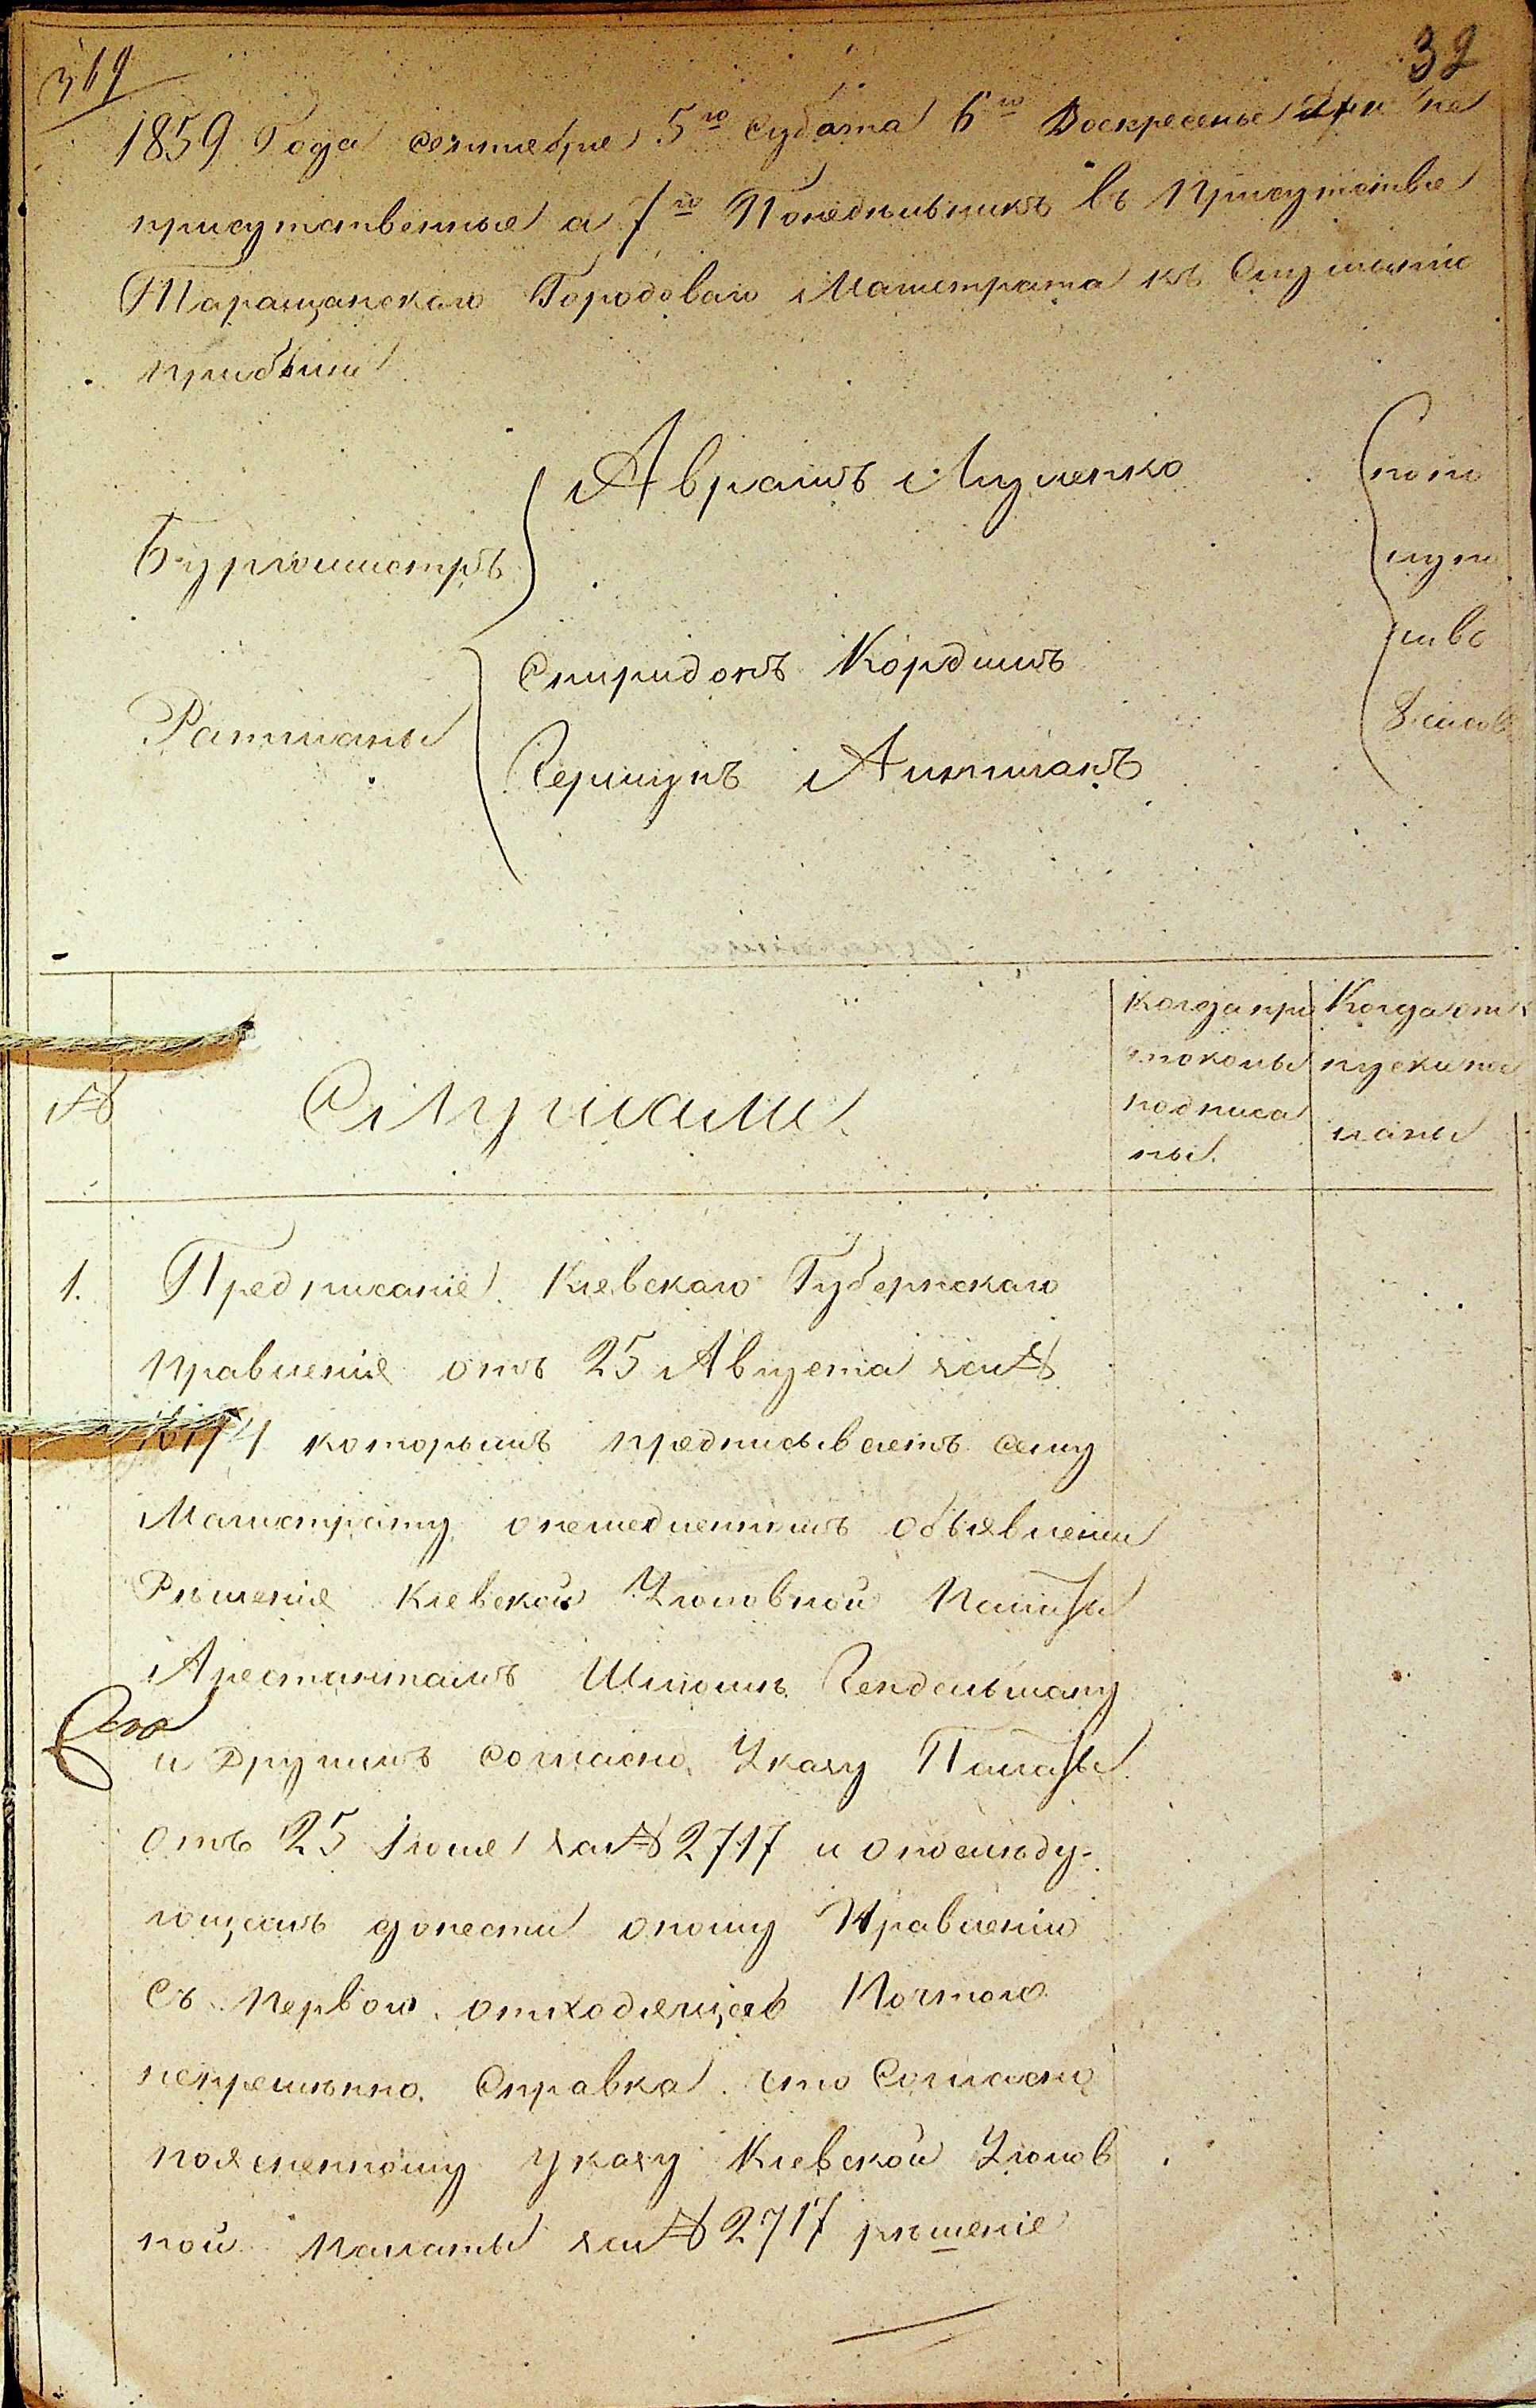 32
1859 Года сентября 5го Субота 6го Воскресенье дни не
присутственные а 7го Понедельникъ въ Присутствіе
Таращанского Городоваго Магистрата къ Слушанію
прибыли
Бургомистръ
Аврамъ Луценко
Ратманы
Спиридонъ Кордишъ
Гершунъ Антманъ
по по
луно
часовъ
№
Слушали
Когда про
токолы
подписа
ны.
Когда от
пуски по
ланы
1. Предписаніе Кіевскаго Губернскаго
Правленія отъ 25 Августа за №
которымъ предписываетъ сему
Магистрату о немедленномъ объявленіи
Рѣшенія Кіевской Уголовной Палаты
Арестантамъ Шлиомѣ Гендельману
и Другимъ согласно Указу Палаты
отъ 25 Іюля за № 2717 и о послѣду-
ющемъ донести оному Правленію
Съ Первою отходящею Почтою
непремѣнно. Справка что Согласно
поясненному Указу Кіевской Уголов
ной Палаты за № 2717 рѣшеніе